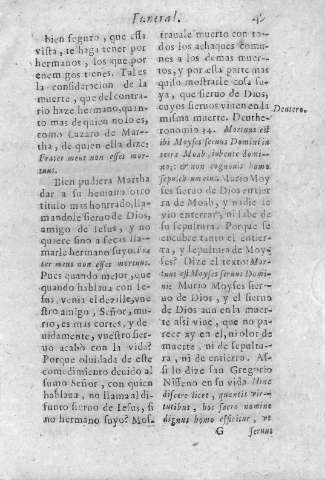 Funeral.
bien seguro, que esta
vista, te haga tener por
hermanos, los que por
enemigos tienes. Tal es
la consideracion de la
muerte, que del contra-
rio haze hermano, quan-
to mas de quien no lo es,
como Lazaro de Mar-
tha, de quien ella dize:
Frater meus non esset mor-
tuus.
Bien pudiera Martha
dar a su hermano otro
titulo mas honrrado, lla-
mandole sieruo de Dios,
amigo de Iesus, y no
quiere sino a secas lla-
marle hermano suyo. Fra
ter meus non esset mortuus.
Pues quando mejor, que
quando hablaua con Ie-
sus, venia el dezille, vues
tro amigo, Señor, mu-
rio, es mas cortes, y de-
uidamente, vuestro sier-
uo acabò con la vida?
Porque oluidada de este
comedimiento deuido al
sumo Señor, con quien
hablaua, no llama al di-
funto sieruo de Iesus, si
no hermano suyo? Mos-
trauale muerto con to-
dos los achaques comu-
nes a los demas muer-
tos, y por esta parte mas
quiso mostrarle cosa su-
ya, que sieruo de Dios,
cuyos sieruos viuen en la
misma muerte. Deuthe-
ronomio 34. Mortuus est
ibi Moyses seruus Domini in
terra Moab, iubente domi-
no: & non cognouit homo
sepulchrum eius. Murio Moy
ses sieruo de Dios en tier
ra de Moab, y nadie le
vio enterrar, ni sabe de
su sepultura. Porque se
encubre tanto el entier-
ra, y sepultura de Moy-
ses? Dize el texto: Mor-
tuus est Moyses seruus Domi-
ni. Murio Moyses sier-
uo de Dios, y el sieruo
de Dios aun en la muer-
te assi viue, que no pa-
rece ay en el, ni olor de
muerte, ni de sepultu-
ra, ni de entierro. As-
si lo dize san Gregorio
Nisseno en su vida Hinc
discere licet, quantis vir-
tutibus, hoc sacro nomine
dignus homo efficitur, vt
Deutero.
G seruus